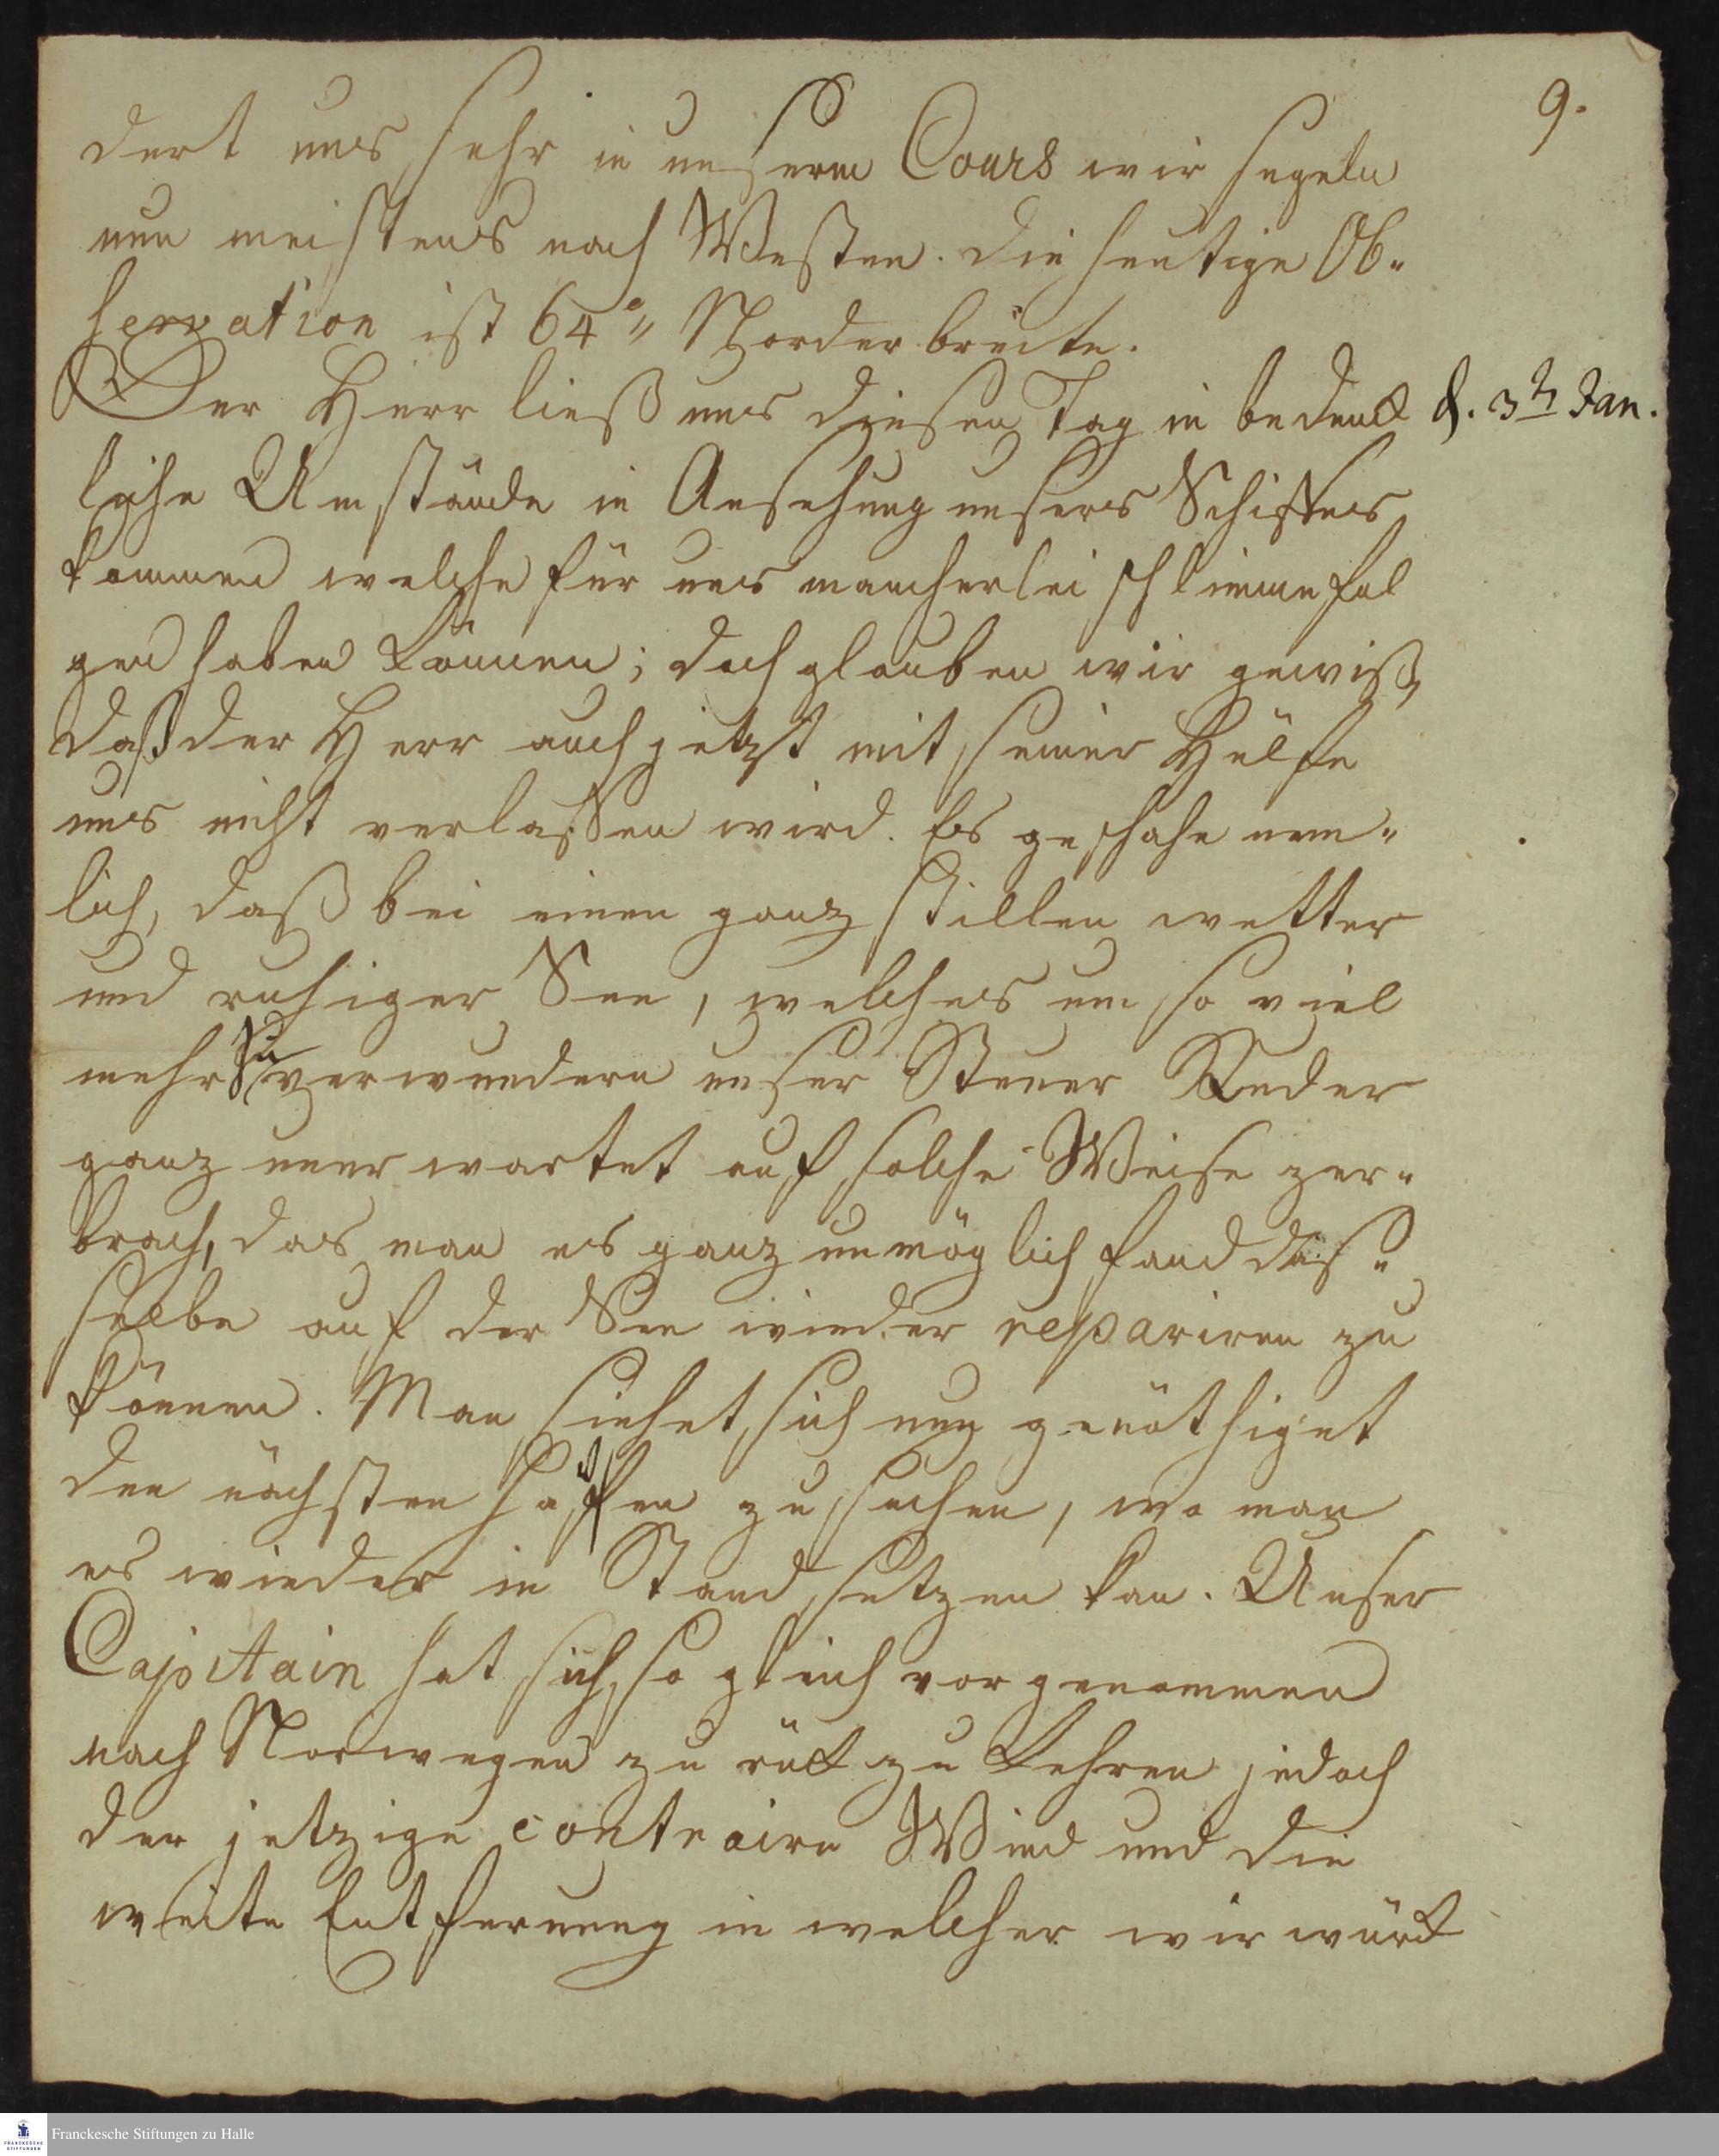 9.
dert uns sehr in unserm Cours wir segeln
nun meistens nach Westen. die heutige Ob-
servation ist 64° Norder breite.
Der Herr ließ uns diesen Tag in bedenck d. 3t Jan.
liche Umstände in Ansehung unsers Schiffes
kommen welche für uns mancherlei schlimme fol
gen haben können; doch glauben wir gewiß,
daß der Herr auch jetzt mit seiner Hülfe
uns nicht verlassen wird. Es geschahe nem-
lich, daß bei einen ganz stillen wetter
und ruhiger See, welches um so viel
mehr zu verwundern unser Steuer Ruder
ganz unerwartet auf solche Weise zer-
brach, das man es ganz unmöglich fand das-
selbe auf der See wieder repariren zu
können. Man siehet sich nun genöthiget
den nächsten Hafen zu suchen, wo man
es wieder in Stand setzen kan. Unser
Capitain hat sich so gleich vorgenommen
nach Norwegen zu rück zu kehren jedoch
der jetzige contraire Wind und die
weite Entfernung in welcher wir würk
Franckesche Stiftungen zu Halle